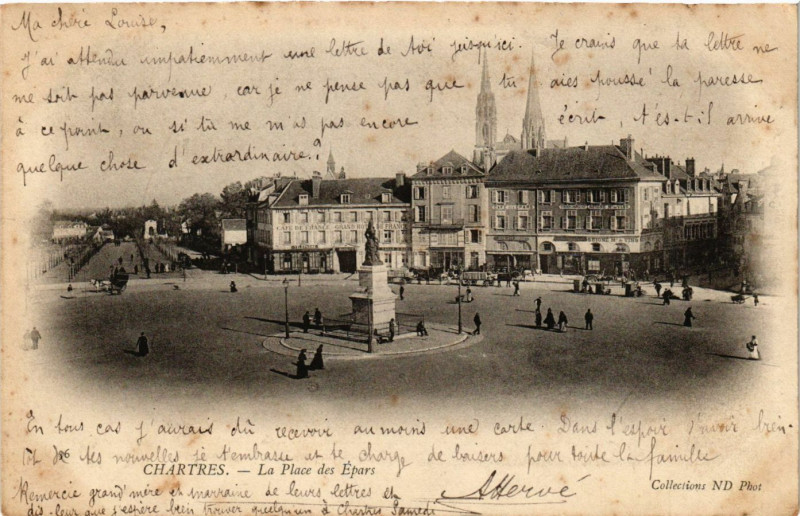 Ma chère Louise,
J'ai attendu impatiemment une lettre de toi jusqu'ici. Je crains que ta lettre ne
me soit pas parvenue, car je ne pense pas que tu aies poussé la paresse
à ce point, ou si tu me m'as pas encore écrit, t'es-t-il arrivé
quelque chose d'extraordinaire?
CAFE DE FRANCE GRAND HOTEL
En tous cas j'aurais dû recevoir au moins une carte. Dans l'espoir d'avoir bien-
tôt des tes nouvelles je t'embrasse et te charge de baisers pour toute la famille
CHARTRES. — La Place des Épars
Collections ND Phot
Remercie grand'mère et marraine de leurs lettres et
dis-leur que j'espère bien trouver quelqu'un à Chartres Samedi
AHervé